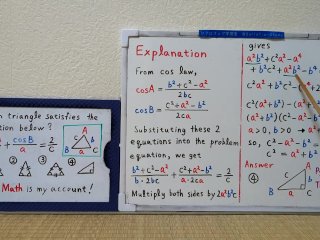 n triangle satisfies the
tion below ?
+ cosB/a = 2/c
A
c b
B a C
②
③
④
Math is my account!
Explanation
From cos law,
cosA = b²+c²-a²/2bc
cosB = c²+a²-b²/2ca
Substituting these 2
equations into the problem
equation, we get
b²+c²-a²/b·2bc + c²+a²-b²/a·2ca = 2/c
Multiply both sides by 2a²b²c
gives
a²b²+c²a²-a⁴
+b²c²+a²b²-b⁴
c²a²+b²c²-a⁴
c²(a²+b²)
c²(a²+b²)
a>0, b>0 →
so, c²-a²-b²
c²=a²+b²
Answer
④
A
c b
B a